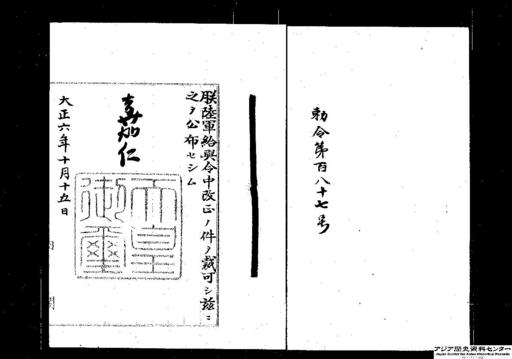 勅令第百八十七号
朕陸軍給與令中改正ノ件ヲ裁可シ茲ニ
之ヲ公布セシム
嘉仁
天皇
御璽
大正六年十月十五日
アジア歴史資料センター
Japan Center for Asian Historical Records